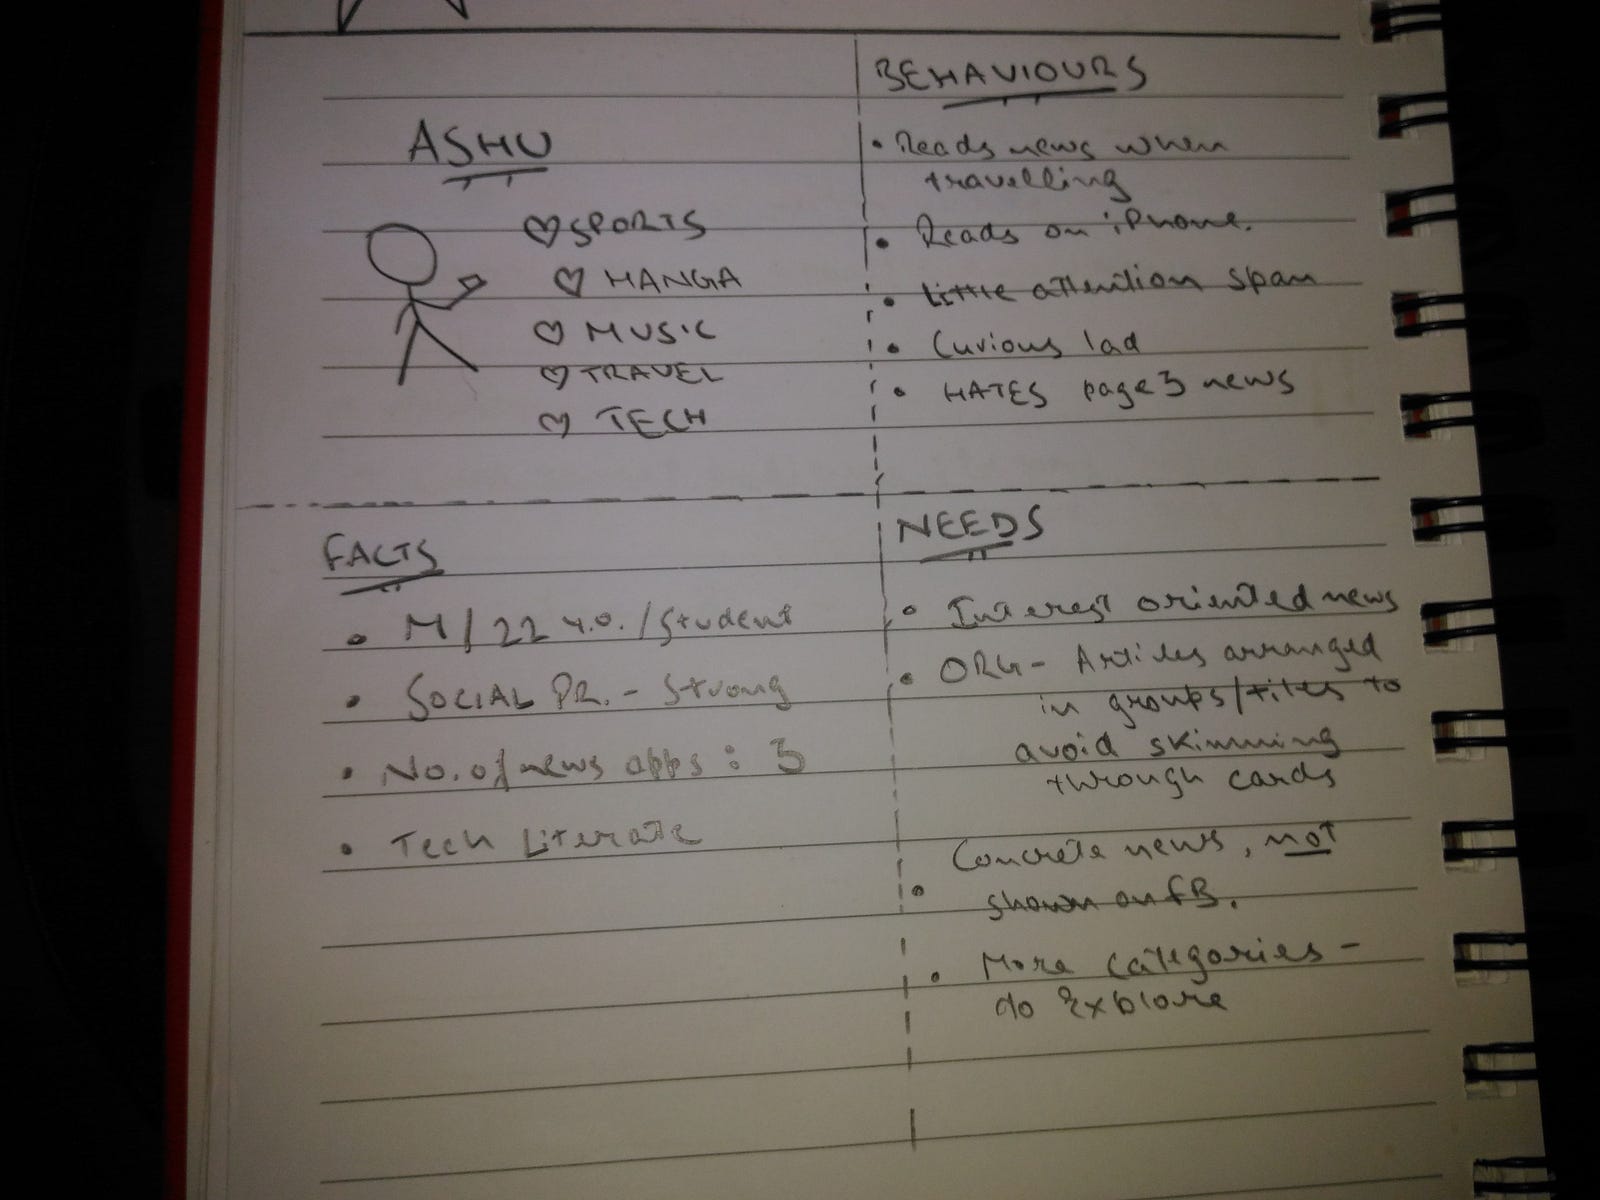 ASHU
♡ SPORTS
♡ MANGA
♡ MUSIC
♡ TRAVEL
♡ TECH
BEHAVIOURS
• Reads news when
travelling
• Reads on iPhone.
• Little attention span
• Curious lad
• HATES page 3 news
FACTS
• M/22 y.o./Student
• SOCIAL PR. - Strong
• No. of news apps : 3
• Tech Literate
NEEDS
• Interest oriented news
• ORG - Articles arranged
in groups/tiles to
avoid skimming
through cards
• Concrete news, not
shown on FB.
• More categories -
to Explore